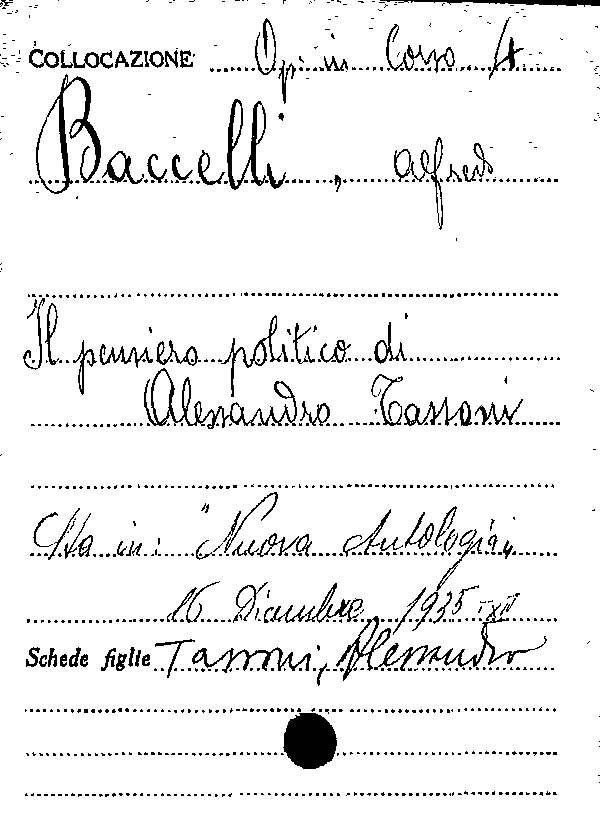 COLLOCAZIONE Op. in Corso 4
Baccelli, Alfredo
Il pensiero politico di
Alessandro Tassoni
Sta in: "Nuova Antologia"
16 Dicembre 1935
Schede figlie Tassoni, Alessandro